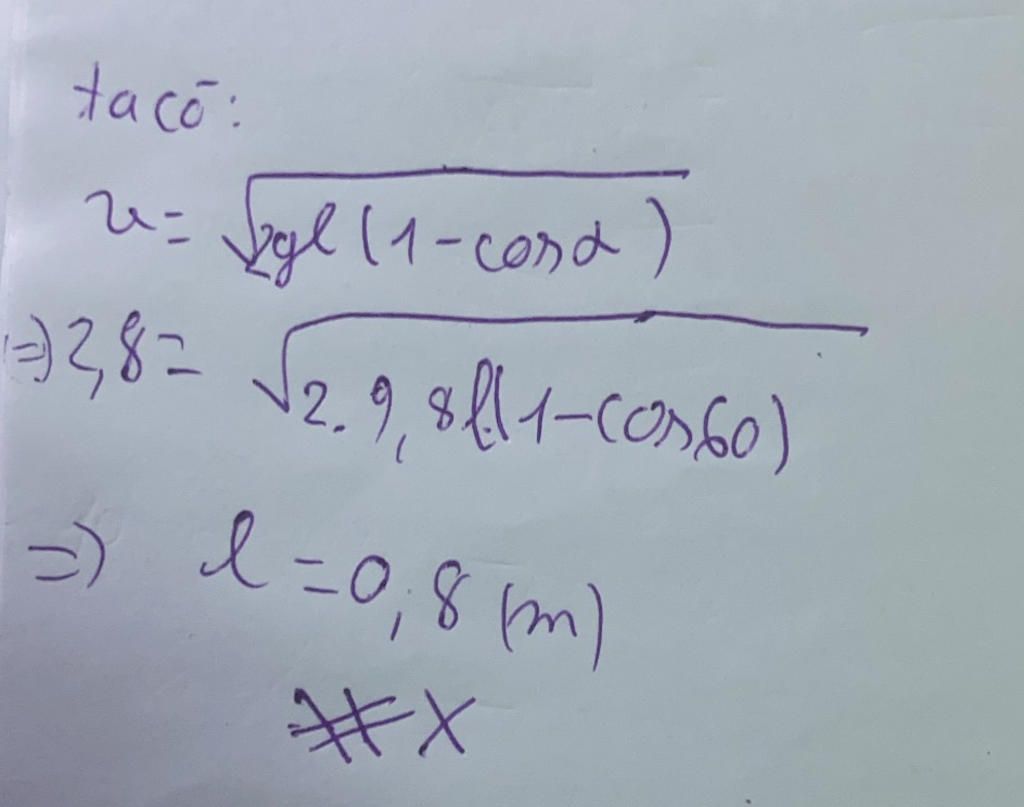 ta có:
v = √2gl(1-cosα)
=> 2,8 = √2.9,8l(1-cos60)
=> l = 0,8 (m)
#X